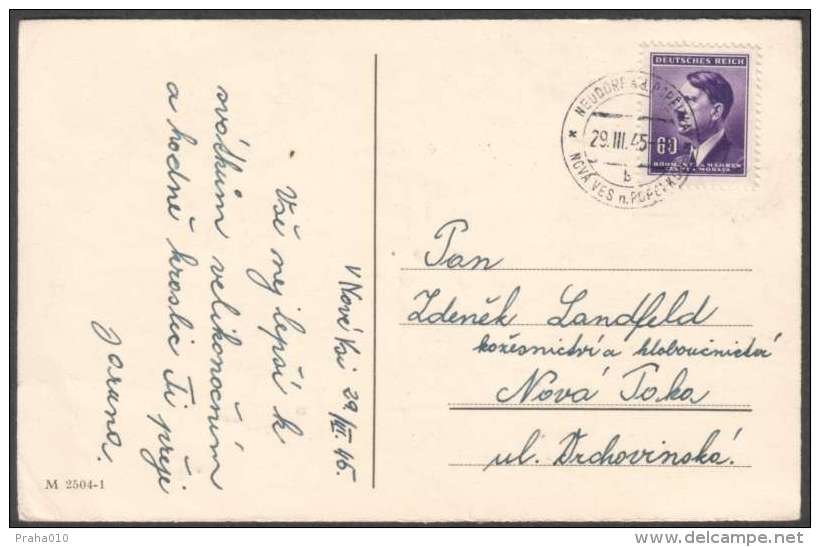 V Nové Vsi 29/III. 45.
Vše nej lepší k
svátkům velikonočním
a hodně kraslic Ti přeje
Jaruna.
M 2504-1
DEUTSCHES REICH
60
BÖHMEN U. MÄHREN
ČECHY a MORAVA
NEUDORF a.d. POPELKA
29.III.45
b
NOVÁ VES n. POPELKOU
Pan
Zdeněk Landfeld
kožešnictví a kloboučnictví
Nová Paka
ul. Drchovinská.
Praha010
delcampe.net